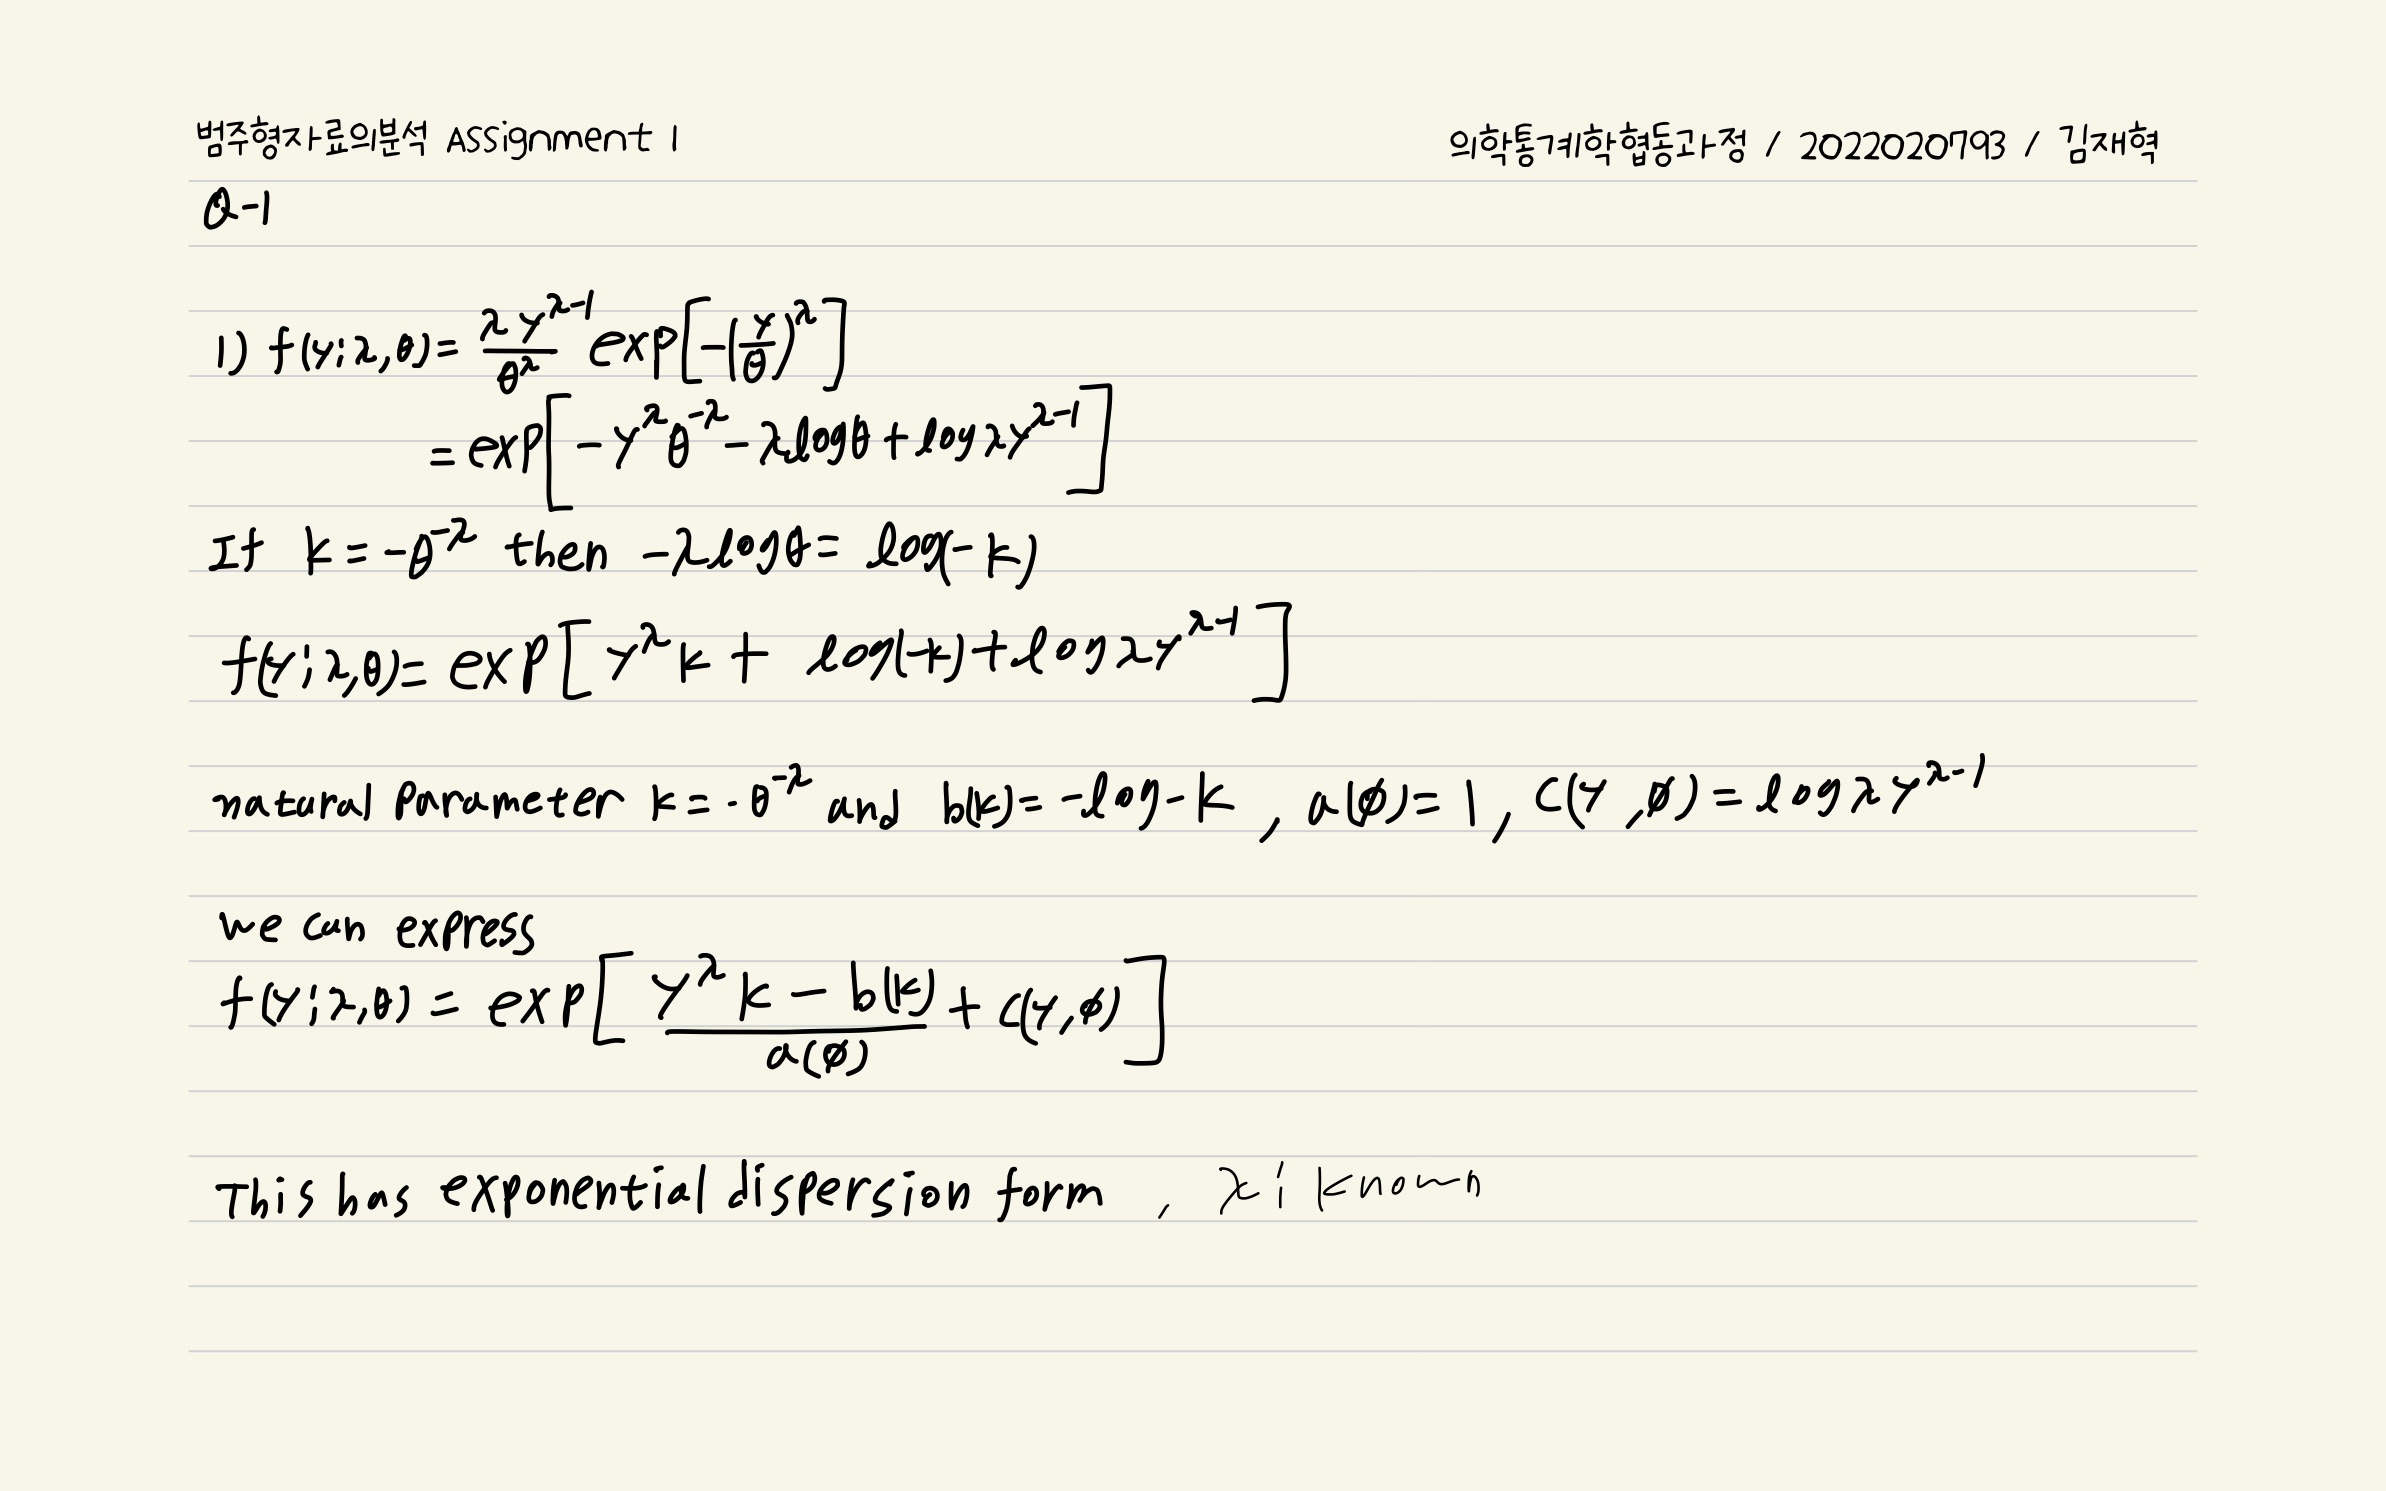 범주형자료의분석 Assignment 1
의학통계학협동과정 / 2022020793 / 김재혁
Q-1
1) f(y;λ,θ) = λy^{λ-1}/θ^λ exp[-(y/θ)^λ]
= exp[-y^λ θ^{-λ} - λlogθ + log λy^{λ-1}]
If k = -θ^{-λ} then -λlogθ = log(-k)
f(y;λ,θ) = exp[y^λ k + log(-k) + log λy^{λ-1}]
natural parameter k = -θ^{-λ} and b(k) = -log-k , a(ø) = 1, c(y,ø) = log λy^{λ-1}
we can express
f(y;λ,θ) = exp[(y^λ k - b(k))/a(ø) + c(y,ø)]
This has exponential dispersion form , λ ; known